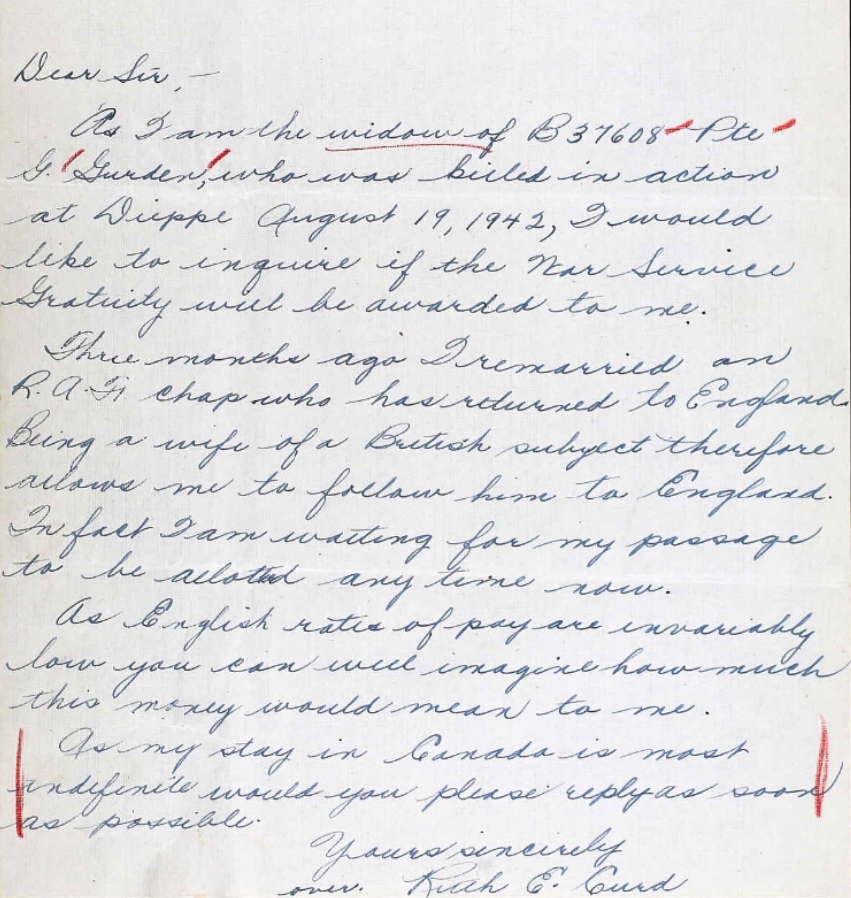 Dear Sir,-
As I am the widow of B37608 Pte
G. Gurden, who was killed in action
at Dieppe August 19, 1942, I would
like to inquire if the War Service
Gratuity will be awarded to me.
Three months ago I remarried an
R.A.F. chap who has returned to England.
Being a wife of a British subject therefore
allows me to follow him to England.
In fact I am waiting for my passage
to be alloted any time now.
As English rates of pay are invariably
low you can well imagine how much
this money would mean to me.
As my stay in Canada is most
indefinite would you please reply as soon
as possible.
Yours sincerely
over. Ruth E. Curd